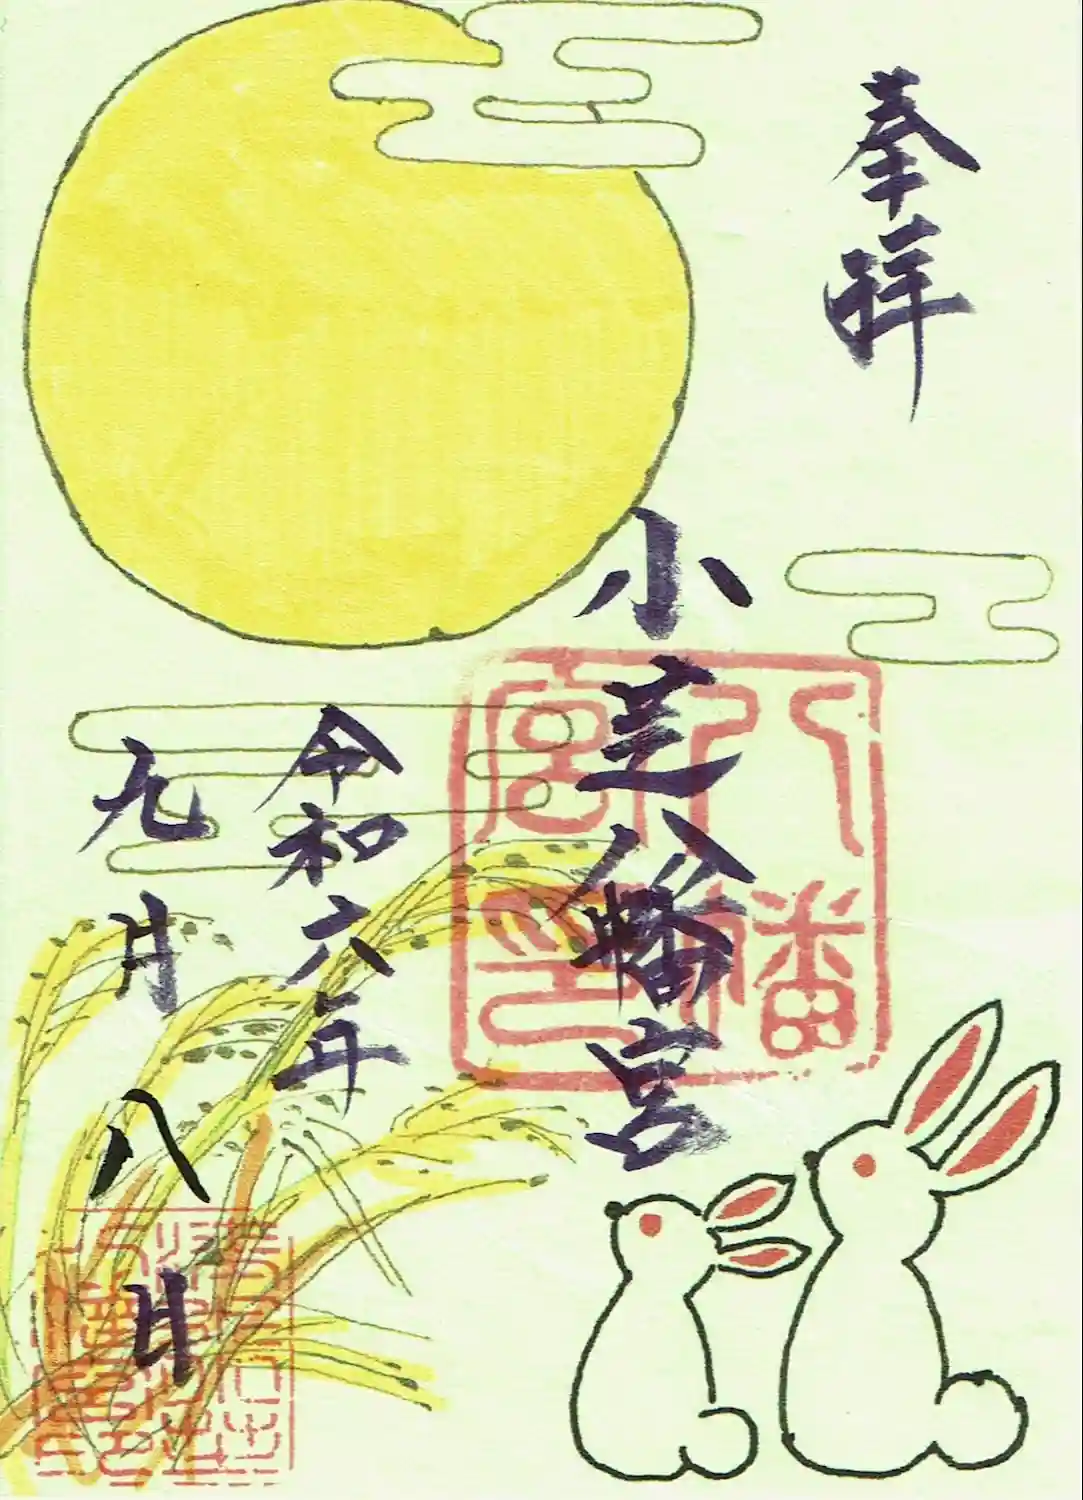 奉拝
小芝八幡宮
八幡
宮印
令和六年
九月八日